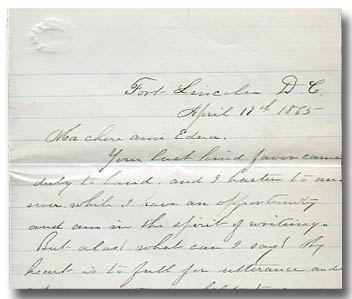 Fort Lincoln D. C.
April 18th 1865
Ma chere ami Edna.
Your last kind favor came
duly to hand, and I hasten to an=
swer while I have an opportunity
and am in the spirit of writing.
But alas! what can I say! My
heart is to full for utterance, and